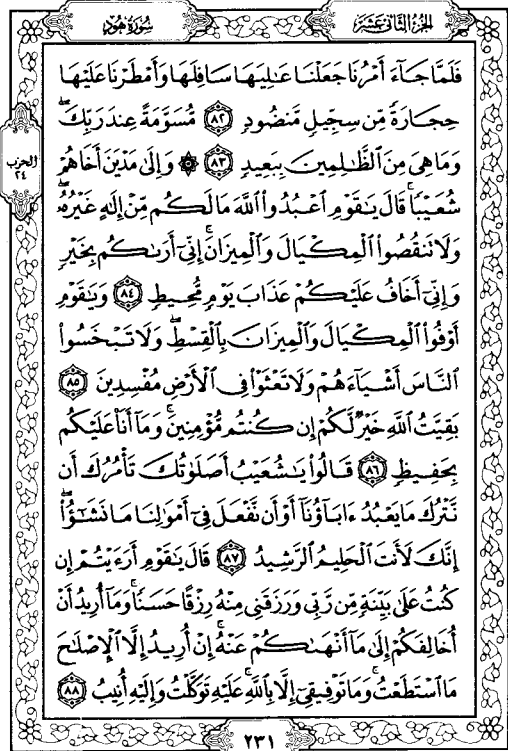 الجزء الثاني عشر
سورة هود
فَلَمَّا جَآءَ أَمْرُنَا جَعَلْنَا عَٰلِيَهَا سَافِلَهَا وَأَمْطَرْنَا عَلَيْهَا
حِجَارَةً مِّن سِجِّيلٍ مَّنضُودٍ ٨٢ مُّسَوَّمَةً عِندَ رَبِّكَ ۖ
وَمَا هِىَ مِنَ ٱلظَّٰلِمِينَ بِبَعِيدٍ ٨٣ ۞ وَإِلَىٰ مَدْيَنَ أَخَاهُمْ
الحزب
٢٤
شُعَيْبًا ۚ قَالَ يَٰقَوْمِ ٱعْبُدُوا۟ ٱللَّهَ مَا لَكُم مِّنْ إِلَٰهٍ غَيْرُهُۥ ۖ
وَلَا تَنقُصُوا۟ ٱلْمِكْيَالَ وَٱلْمِيزَانَ ۚ إِنِّىٓ أَرَىٰكُم بِخَيْرٍ
وَإِنِّىٓ أَخَافُ عَلَيْكُمْ عَذَابَ يَوْمٍ مُّحِيطٍ ٨٤ وَيَٰقَوْمِ
أَوْفُوا۟ ٱلْمِكْيَالَ وَٱلْمِيزَانَ بِٱلْقِسْطِ ۖ وَلَا تَبْخَسُوا۟
ٱلنَّاسَ أَشْيَآءَهُمْ وَلَا تَعْثَوْا۟ فِى ٱلْأَرْضِ مُفْسِدِينَ ٨٥
بَقِيَّتُ ٱللَّهِ خَيْرٌ لَّكُمْ إِن كُنتُم مُّؤْمِنِينَ ۚ وَمَآ أَنَا۠ عَلَيْكُم
بِحَفِيظٍ ٨٦ قَالُوا۟ يَٰشُعَيْبُ أَصَلَوٰتُكَ تَأْمُرُكَ أَن
نَّتْرُكَ مَا يَعْبُدُ ءَابَآؤُنَآ أَوْ أَن نَّفْعَلَ فِىٓ أَمْوَٰلِنَا مَا نَشَٰٓؤُا۟ ۖ
إِنَّكَ لَأَنتَ ٱلْحَلِيمُ ٱلرَّشِيدُ ٨٧ قَالَ يَٰقَوْمِ أَرَءَيْتُمْ إِن
كُنتُ عَلَىٰ بَيِّنَةٍ مِّن رَّبِّى وَرَزَقَنِى مِنْهُ رِزْقًا حَسَنًا ۚ وَمَآ أُرِيدُ أَنْ
أُخَالِفَكُمْ إِلَىٰ مَآ أَنْهَىٰكُمْ عَنْهُ ۚ إِنْ أُرِيدُ إِلَّا ٱلْإِصْلَٰحَ
مَا ٱسْتَطَعْتُ ۚ وَمَا تَوْفِيقِىٓ إِلَّا بِٱللَّهِ ۚ عَلَيْهِ تَوَكَّلْتُ وَإِلَيْهِ أُنِيبُ ٨٨
٢٣١